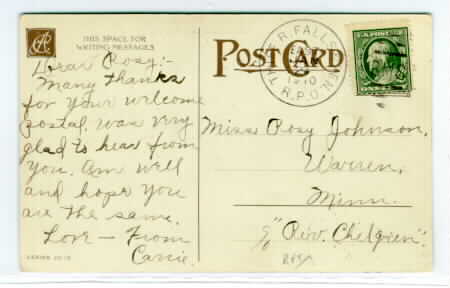 THIS SPACE FOR
WRITING MESSAGES
POST CARD
R. FALLS
1910
R.P.O.
Dear Rosy:-
Many thanks
for your welcome
postal, was very
glad to hear from
you. Am well
and hope you
are the same.
Love - From
Carrie.
Miss Rosy Johnson,
Warren,
Minn.
"Rev. Chelgrien".
SERIES